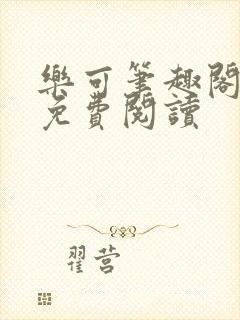 樂可筆趣閣
免費閱讀
翟营